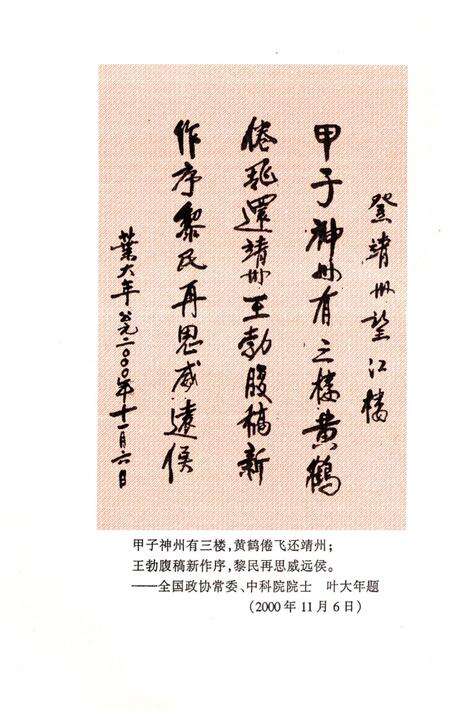 登靖州望江楼
甲子神州有三楼黄鹤
倦飛還靖州王勃腹稿新
作序黎民再思威遠侯
葉大年公元二〇〇〇年十一月六日
甲子神州有三楼,黄鹤倦飞还靖州;
王勃腹稿新作序,黎民再思威远侯。
——全国政协常委、中科院院士 叶大年题
(2000年11月6日)